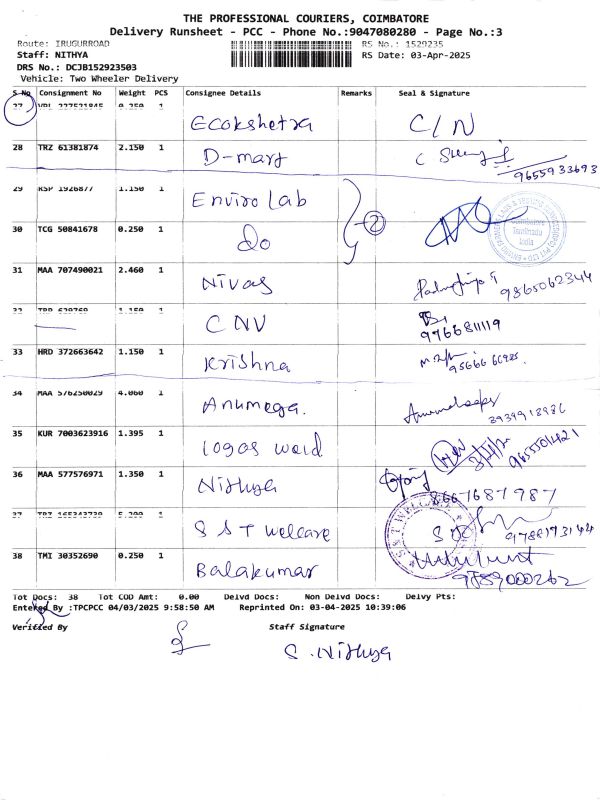 THE PROFESSIONAL COURIERS, COIMBATORE
Delivery Runsheet - PCC - Phone No.:9047080280 - Page No.:3
Route: IRUGURROAD RS No.: 1529235
Staff: NITHYA RS Date: 03-Apr-2025
DRS No.: DCJB152923503
Vehicle: Two Wheeler Delivery
S No Consignment No Weight PCS Consignee Details Remarks Seal & Signature
27 VPL 227521845 0.250 1 Ecokshetra C/N
28 TRZ 61381874 2.150 1 D-mart 9655933693
29 KSP 1926877 1.150 1 Enviro Lab 2
30 TCG 50841678 0.250 1 do
Coimbatore
Tamilnadu
India
31 MAA 707490021 2.460 1 Nivas 9865062344
32 TRP 629769 1.150 1 CNV 9766811119
33 HRD 372663642 1.150 1 Krishna
34 MAA 576250029 4.060 1 Anumega.
35 KUR 7003623916 1.395 1 Logos weld 9655501421
36 MAA 577576971 1.350 1 Nithya 8667687987
37 TRZ 165343739 5.200 1 S S T welcare 9788173144
S & T WELCARE
38 TMI 30352690 0.250 1 Balakumar 9889000262
Tot Docs: 38 Tot COD Amt: 0.00 Delvd Docs: Non Delvd Docs: Delvy Pts:
Entered By :TPCPCC 04/03/2025 9:58:50 AM Reprinted On: 03-04-2025 10:39:06
Verified By Staff Signature
S. Nithya